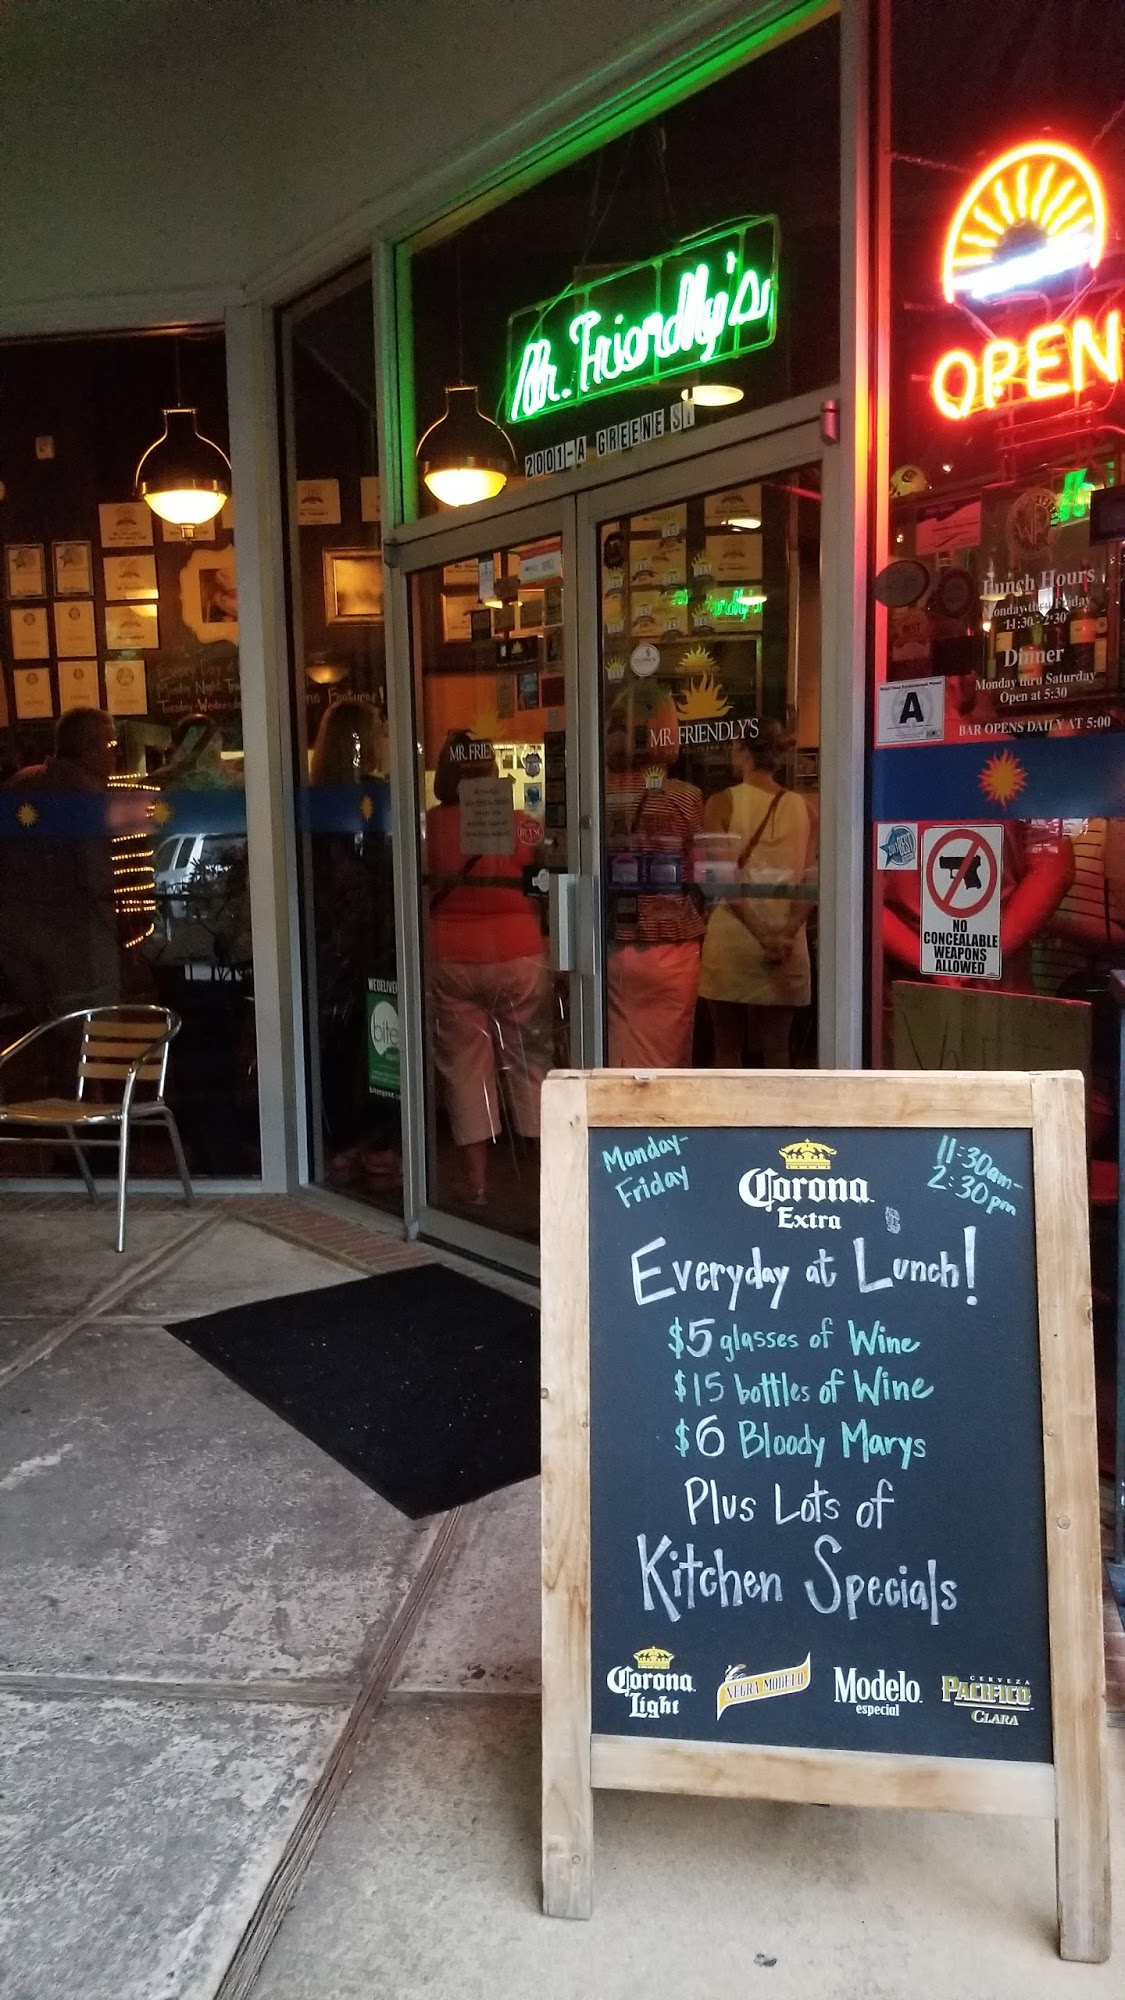 Mr. Friendly's
OPEN
2001-A GREENE ST
Lunch Hours
Monday thru Friday
11:30 - 2:30
Dinner
Monday thru Saturday
Open at 5:30
BAR OPENS DAILY AT 5:00
A
MR. FRIE
MR. FRIENDLY'S
BEST
NO
CONCEALABLE
WEAPONS
ALLOWED
WE DELIVER
bite
Monday-
Friday
11:30am-
2:30pm
Corona
Extra
Everyday at Lunch!
$5 glasses of Wine
$15 bottles of Wine
$6 Bloody Marys
Plus Lots of
Kitchen Specials
Corona
Light
NEGRA MODELO
Modelo
especial
CERVEZA
PACIFICO
CLARA